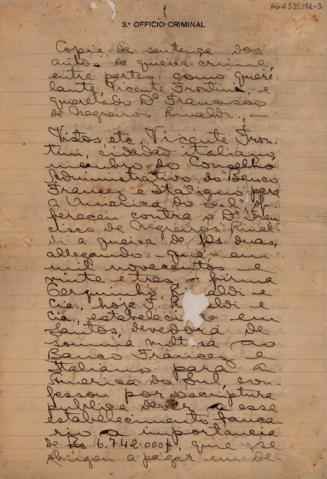 3.º OFFICIO CRIMINAL
Copia da sentença dos
autos de queixa crime,
entre partes, como quere-
lante, Vicente Frontini, e
querelado Dr. Francisco
de Negreiros Rinaldi. —
Vistos, etc. Vicente Fron-
tini, cidadão italiano,
membro do Conselho
Administractivo do "Banco
Francez e Italiano para
a America do Sul", of-
fereceu contra o Dr. Fran-
cisco de Negreiros Rinal-
di a queixa de fls. duas,
allegando — que em
mil novecentos e
vinte e tres a firma
Cerquinho, Rinaldi e
Cia, hoje Rinaldi e
Cia, estabelecido em
Santos, devedora de
somma ao
Banco Francez e
Italiano para a
America do Sul, con-
fessou por escriptura
publica dever a esse
estabelecimento banca-
rio a importancia
de Rs 6.742.000$, que se
obrigou a pagar em de